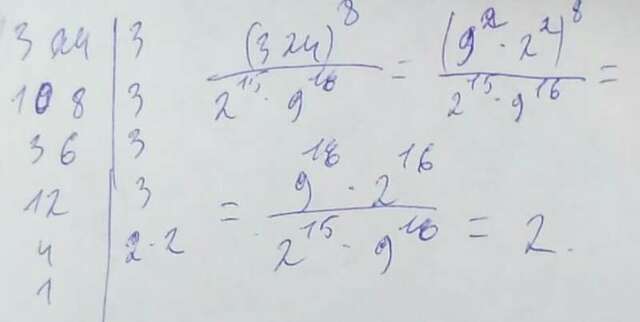 324 | 3
108 | 3
36 | 3
12 | 3
4 | 2·2
1 |
(324)^8 / (2^15 · 9^16) = (9^2 · 2^2)^8 / (2^15 · 9^16) =
= (9^16 · 2^16) / (2^15 · 9^16) = 2.